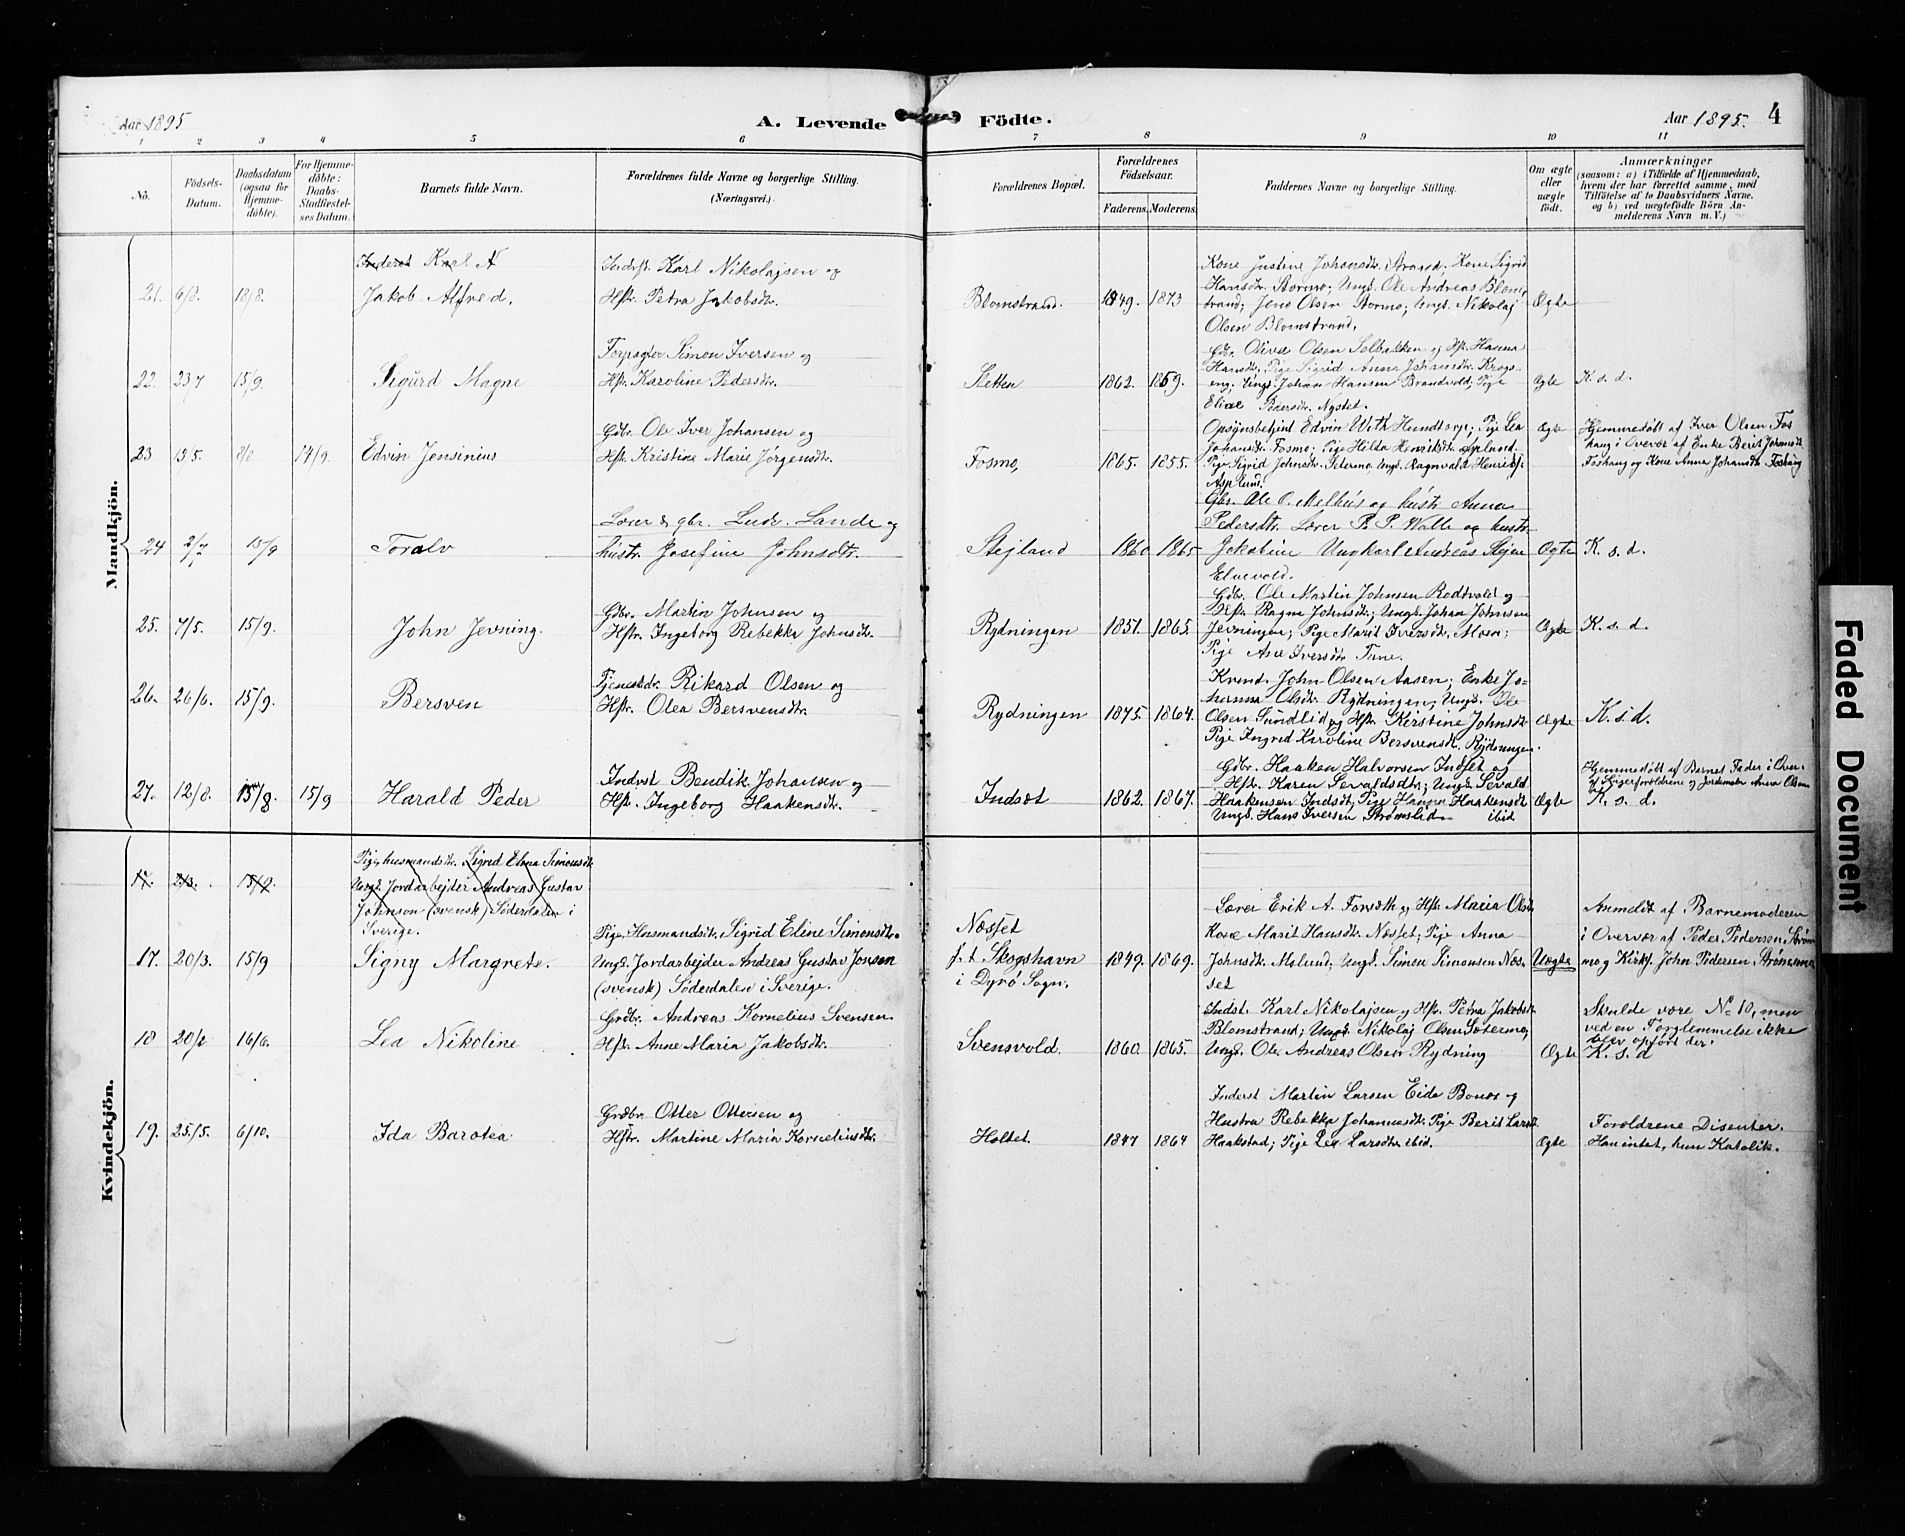 Aar 1895
A. Levende Födte.
Aar 1895. 4
1 2 3 4 5 6 7 8 9 10 11
No.
Födsels-Datum.
Daabsdatum (ogsaa för Hjemmedöbte).
For Hjemmedöbte: Daabs-Stadfæstelses Datum.
Barnets fulde Navn.
Forældrenes fulde Navne og borgerlige Stilling. (Næringsvei.)
Forældrenes Bopæl.
Forældrenes Födselsaar.
Faderens. Moderens.
Faddernes Navne og borgerlige Stilling.
Om ægte eller uægte födt.
Anmærkninger
(saasom: a) i Tilfælde af Hjemmedaab, hvem der har forrettet samme, med Tilföielse af to Daabsvidners Navne, og b) ved uægtefödte Börn Anmelderens Navn m. V.)
Mandkjön.
Inderst Karl N
21. 6/8. 18/8. Jakob Alfred.
Inderst. Karl Nikolajsen og
Hst. Petra Jakobsdtr.
Blomstrand. 1849. 1873
Kone Justine Johansdtr. Strand; Kone Sigrid
Hansdtr. Stormo; Ungk. Ole Andreas Blom-
strand; Jens Olsen Stormo; Ungk. Nikolaj
Olsen Blomstrand.
Ægte
22. 23/7 15/9. Sigurd Magne
Forpagter Simon Iversen og
Hst. Karoline Pedersdtr.
Sletten 1862. 1859.
Gdbr. Oliver Olsen Solbakken og Hst. Hanna
Hansdtr. Pige Sigrid Anna Johansdtr. Krogs-
eng; Ungk. Johan Hansen Brandvold; Pige
Elise Pedersdtr. Nystet.
Ægte K. s. d.
23 13/5. 8/8 14/9. Edvin Jensinius
Gdbr. Ole Iver Johansen og
Hst. Kristine Marie Jörgensdtr.
Fosmo, 1865. 1855.
Opsynsbetjent Edvin Wirth Hundtorp; Pige Lea
Johansdt. Fosmo; Pige Hilda Henriksdtr. Asplund.
Pige Sigrid Johnsdtr. Setermo, Ungk. Ragnvald Henriks.
Asplund.
Ægte
Hjemmedöbt af Iver Olsen Fos
haug i Overvær af Enke Berit Johansdt
Foshaug og Kone Anna Johansdt. Foshaug
24 2/7 15/9 Toralv
Lærer & gbr. Ludv. Lande og
hustr. Josefine Johnsdtr.
Stejland 1860 1865
Gbr. Ole O. Melhus og hustr Anna
Pedersdtr. Lærer P. P. Walle og hustr.
Jakobine Ungkarl Andreas Stejen
Elvevold.
Ægte K. s. d.
25. 7/5. 15/9. John Jevning.
Gdbr. Martin Johnsen og
Hst. Ingeborg Rebekka Johnsdt.
Rydningen 1851. 1865.
Gdbr. Ole Martin Johnsen Roddvold og
Hst. Ragna Johnsdt; Ungk. Johan Johnsen
Jevningen; Pige Marit Iversdt. Moen;
Pige Ane Iversdtr Tune.
Ægte K. s. d.
26. 26/6. 15/9. Bersven
Tjenestdr. Rikard Olsen og
Hst. Olea Bersvensdtr.
Rydningen 1875. 1864.
Kvind. John Olsen Aasen; Enke Jo-
hanna Olsdt. Rydningen, Ungk. Ole
Olsen Sundlid og Hst. Kirstine Johnsdt.
Pige Ingrid Karoline Bersvensdt. Rydningen.
Ægte K. s. d.
27. 12/8. 15/8 15/9 Harald Peder
Inderst Bendik Johansen og
Hst. Ingeborg Haakensdt.
Indsæt 1862. 1867.
Gdbr. Haaken Halvorsen Indset og
Hst. Karen Sevaldsdtr; Ungk. Sevald
Haakensen Indset; Pige Hanna Haakensdt
Ungk. Hans Iversen Strømslid ibid
Ægte
Hjemmedøbt af Barnets Fader i Over-
K. s. d.
Kvindekjön.
17. 2/3. 15/9.
Pige, husmandsdtr. Sigrid Elina Simonsdt.
Ungk. Jordarbejder Andreas Gustav
Johnson (svensk) Söderdalen i
Sverige.
17. 20/3. 15/9 Signy Margrete.
Pige, Husmandsdt. Sigrid Eline Simonsdt.
Ungk. Jordarbejder Andreas Gustav Jonson
(svensk) Söderdalen i Sverige.
Næsset
f. t. Skogshavn
i Dyrö Sogn.
1849. 1869.
Lærer Erik A. Forseth og Hst. Maria Olsd.
Kone Marit Hansdt. Næsset; Pige Anna
Johnsdt. Moland; Ungk. Simon Simonsen Næs-
set
Uægte
Anmeldt af Barnemoderen
i Overvær af Peder Pedersen Strøm
mo og Kirks. John Pedersen Strømsmo
18 20/2 16/6. Lea Nikoline
Grdbr. Andreas Kornelius Svensen
Hst. Anne Maria Jakobsdt.
Svensvold. 1860. 1865.
Indst. Karl Nikolajsen og Hst. Petra Jakobsdt.
Blomstrand; Ungk. Nikolaj Olsen Sotermo;
Ungk. Ole Andreas Olsen Rydning
Ægte
Skulde være No 10, men
ved en Forglemmelse ikke
blev opfört der.
K. s. d
19. 25/5. 6/10. Ida Barotea
Grdbr. Otter Ottersen og
Hst. Martine Maria Korneliusdtr.
Holtet. 1847 1864
Inderst Martin Larsen Eide Bones og
Hustru Rebekka Johannesdt. Pige Berit Larsdt
Haakstad; Pige Lea Larsdtr. ibid.
Ægte
Foroldrene Disenter.
Han intet, hun Katolik.
Faded Document